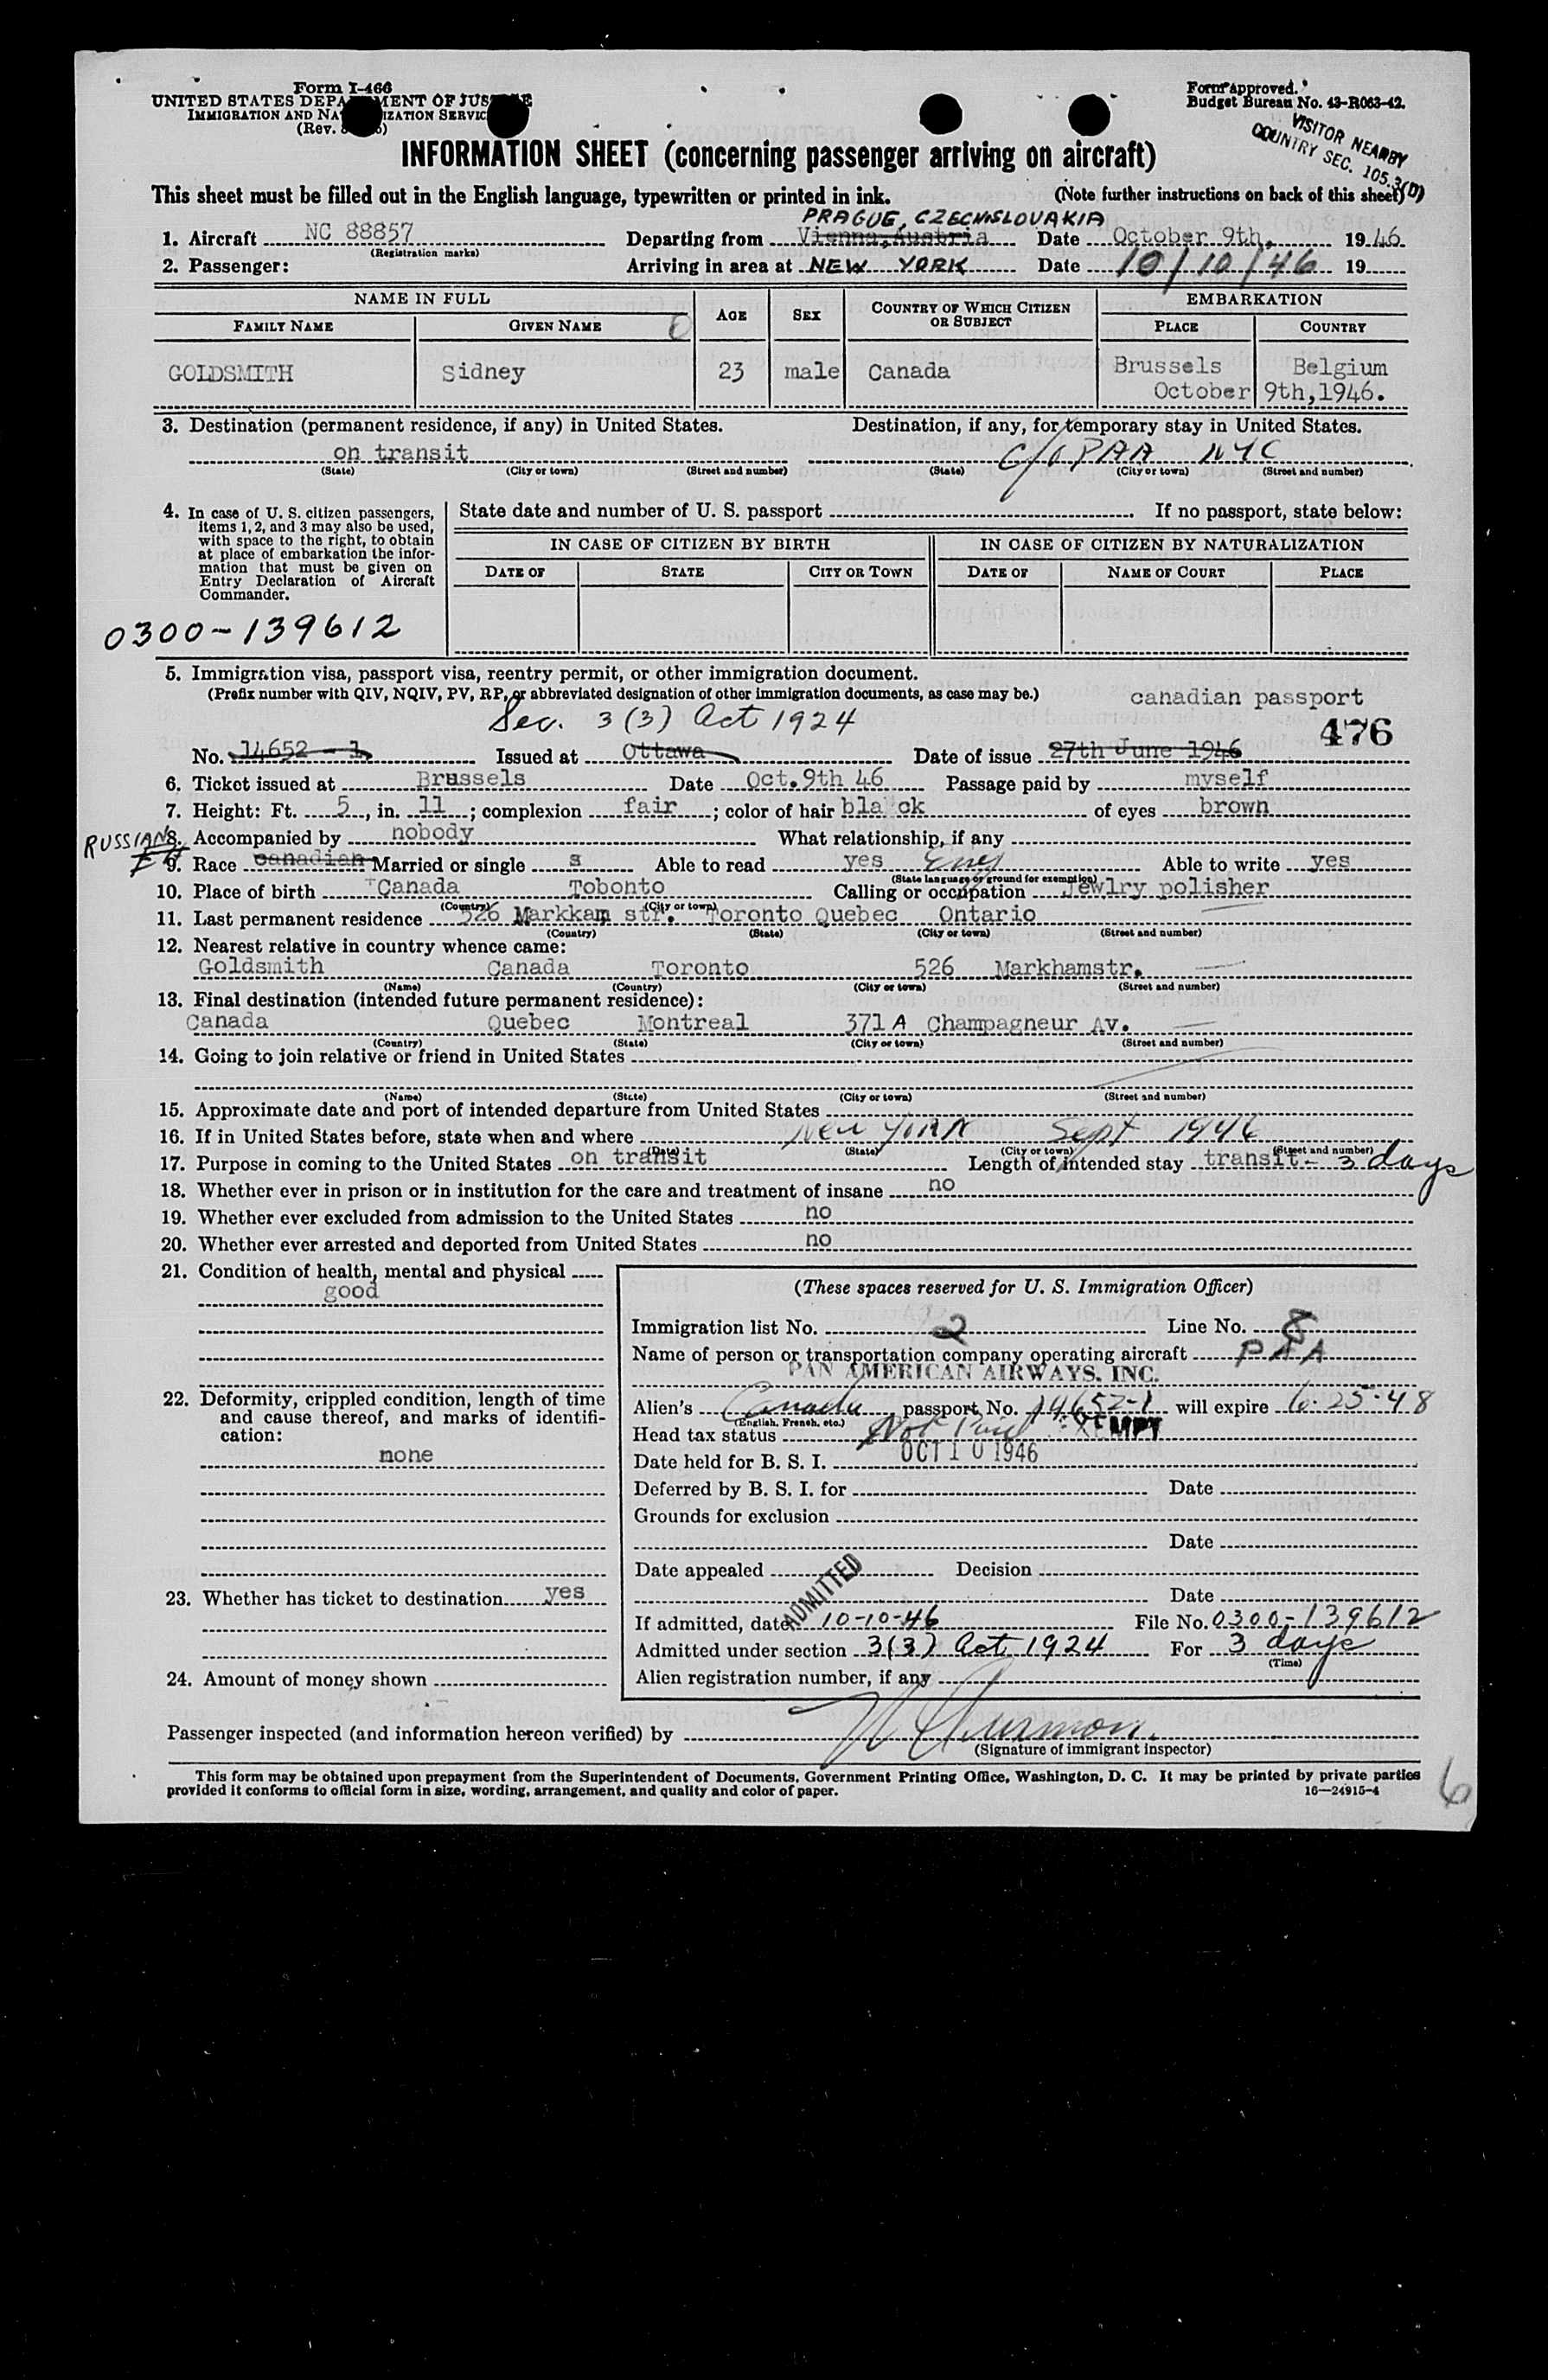 Form I-466
UNITED STATES DEPA MENT OF JUS E
IMMIGRATION AND NA IZATION SERVIC
(Rev.
Form Approved.
Budget Bureau No. 43-R063-42.
VISITOR NEARBY
COUNTRY SEC. 105.3(D)
INFORMATION SHEET (concerning passenger arriving on aircraft)
This sheet must be filled out in the English language, typewritten or printed in ink. (Note further instructions on back of this sheet)
PRAGUE, CZECHOSLOVAKIA
1. Aircraft NC 88857 Departing from Vienna, Austria Date October 9th, 1946
(Registration marks)
2. Passenger: Arriving in area at NEW YORK Date 10/10/46 19
NAME IN FULL AGE SEX COUNTRY OF WHICH CITIZEN OR SUBJECT EMBARKATION
FAMILY NAME GIVEN NAME PLACE COUNTRY
GOLDSMITH Sidney 23 male Canada Brussels Belgium
October 9th,1946.
3. Destination (permanent residence, if any) in United States. Destination, if any, for temporary stay in United States.
on transit c/o PAA NYC
(State) (City or town) (Street and number) (State) (City or town) (Street and number)
4. In case of U. S. citizen passengers,
items 1, 2, and 3 may also be used,
with space to the right, to obtain
at place of embarkation the infor-
mation that must be given on
Entry Declaration of Aircraft
Commander.
State date and number of U. S. passport If no passport, state below:
IN CASE OF CITIZEN BY BIRTH IN CASE OF CITIZEN BY NATURALIZATION
DATE OF STATE CITY OR TOWN DATE OF NAME OF COURT PLACE
0300-139612
5. Immigration visa, passport visa, reentry permit, or other immigration document.
(Prefix number with QIV, NQIV, PV, RP, or abbreviated designation of other immigration documents, as case may be.) canadian passport
Sec. 3(3) Act 1924 476
No. 14652 - 1 Issued at Ottawa Date of issue 27th June 1946
6. Ticket issued at Brussels Date Oct.9th 46 Passage paid by myself
7. Height: Ft. 5, in. 11; complexion fair; color of hair bla ck of eyes brown
RUSSIAN
8. Accompanied by nobody What relationship, if any
9. Race canadian Married or single s Able to read yes Eng Able to write yes
(State language or ground for exemption)
10. Place of birth Canada Tobonto Calling or occupation Jewlry polisher
(Country) (City or town)
11. Last permanent residence 526 Markkam str. Toronto Quebec Ontario
(Country) (State) (City or town) (Street and number)
12. Nearest relative in country whence came:
Goldsmith Canada Toronto 526 Markhamstr.
(Name) (Country) (City or town) (Street and number)
13. Final destination (intended future permanent residence):
Canada Quebec Montreal 371A Champagneur Av.
(Country) (State) (City or town) (Street and number)
14. Going to join relative or friend in United States
(Name) (State) (City or town) (Street and number)
15. Approximate date and port of intended departure from United States
16. If in United States before, state when and where New York Sept 1946
(Date) (State) (City or town) (Street and number)
17. Purpose in coming to the United States on transit Length of intended stay transit - 3 days
18. Whether ever in prison or in institution for the care and treatment of insane no
19. Whether ever excluded from admission to the United States no
20. Whether ever arrested and deported from United States no
21. Condition of health, mental and physical
good
22. Deformity, crippled condition, length of time
and cause thereof, and marks of identifi-
cation:
none
23. Whether has ticket to destination yes
24. Amount of money shown
(These spaces reserved for U. S. Immigration Officer)
Immigration list No. 2 Line No. 8
Name of person or transportation company operating aircraft PAA
PAN AMERICAN AIRWAYS, INC.
Alien's Canada passport No. 14652-1 will expire 6-25-48
(English, French, etc.)
Head tax status Not Paid EXEMPT
Date held for B. S. I. OCT 10 1946
Deferred by B. S. I. for Date
Grounds for exclusion
Date
Date appealed Decision
ADMITTED Date
If admitted, date 10-10-46 File No. 0300-139612
Admitted under section 3(3) Act 1924 For 3 days
(Time)
Alien registration number, if any
Passenger inspected (and information hereon verified) by
(Signature of immigrant inspector)
This form may be obtained upon prepayment from the Superintendent of Documents, Government Printing Office, Washington, D. C. It may be printed by private parties
provided it conforms to official form in size, wording, arrangement, and quality and color of paper. 16—24915-4
6